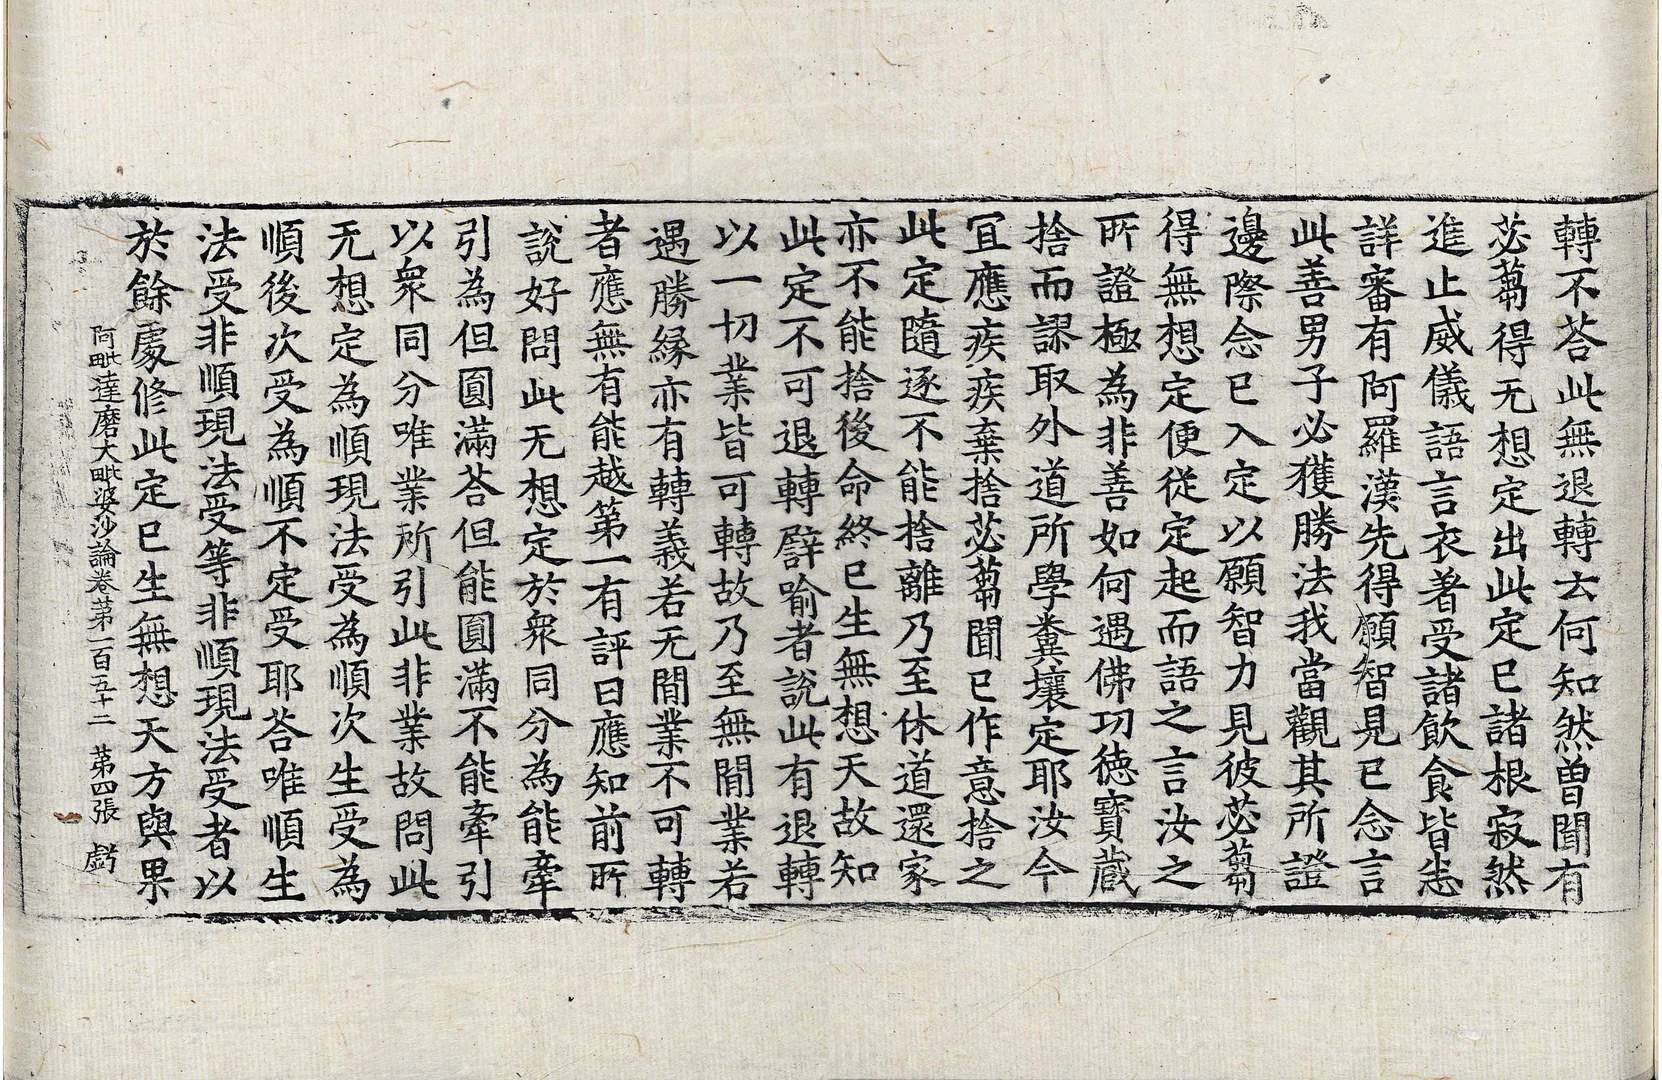 轉不荅此無退轉去何知然曽聞有
苾蒭得无想定出此定已諸根寂然
進止威儀語言衣著受諸飲食皆恙
詳審有阿羅漢先得願智見已念言
此善男子必獲勝法我當觀其所證
邊際念已入定以願智力見彼苾蒭
得無想定便從定起而語之言汝之
所證極為非善如何遇佛功德寶藏
捨而謬取外道所學糞壤定耶汝今
冝應疾疾棄捨苾蒭聞已作意捨之
此定隨逐不能捨離乃至休道還家
亦不能捨後命終已生無想天故知
此定不可退轉譬喻者說此有退轉
以一切業皆可轉故乃至無間業若
遇勝緣亦有轉義若无間業不可轉
者應無有能越第一有評曰應知前所
說好問此无想定於衆同分為能牽
引為但圓滿荅但能圓滿不能牽引
以衆同分唯業所引此非業故問此
无想定為順現法受為順次生受為
順後次受為順不定受耶荅唯順生
法受非順現法受等非順現法受者以
於餘處修此定已生無想天方與果
阿毗達磨大毗婆沙論卷第一百五十二 第四張 虧